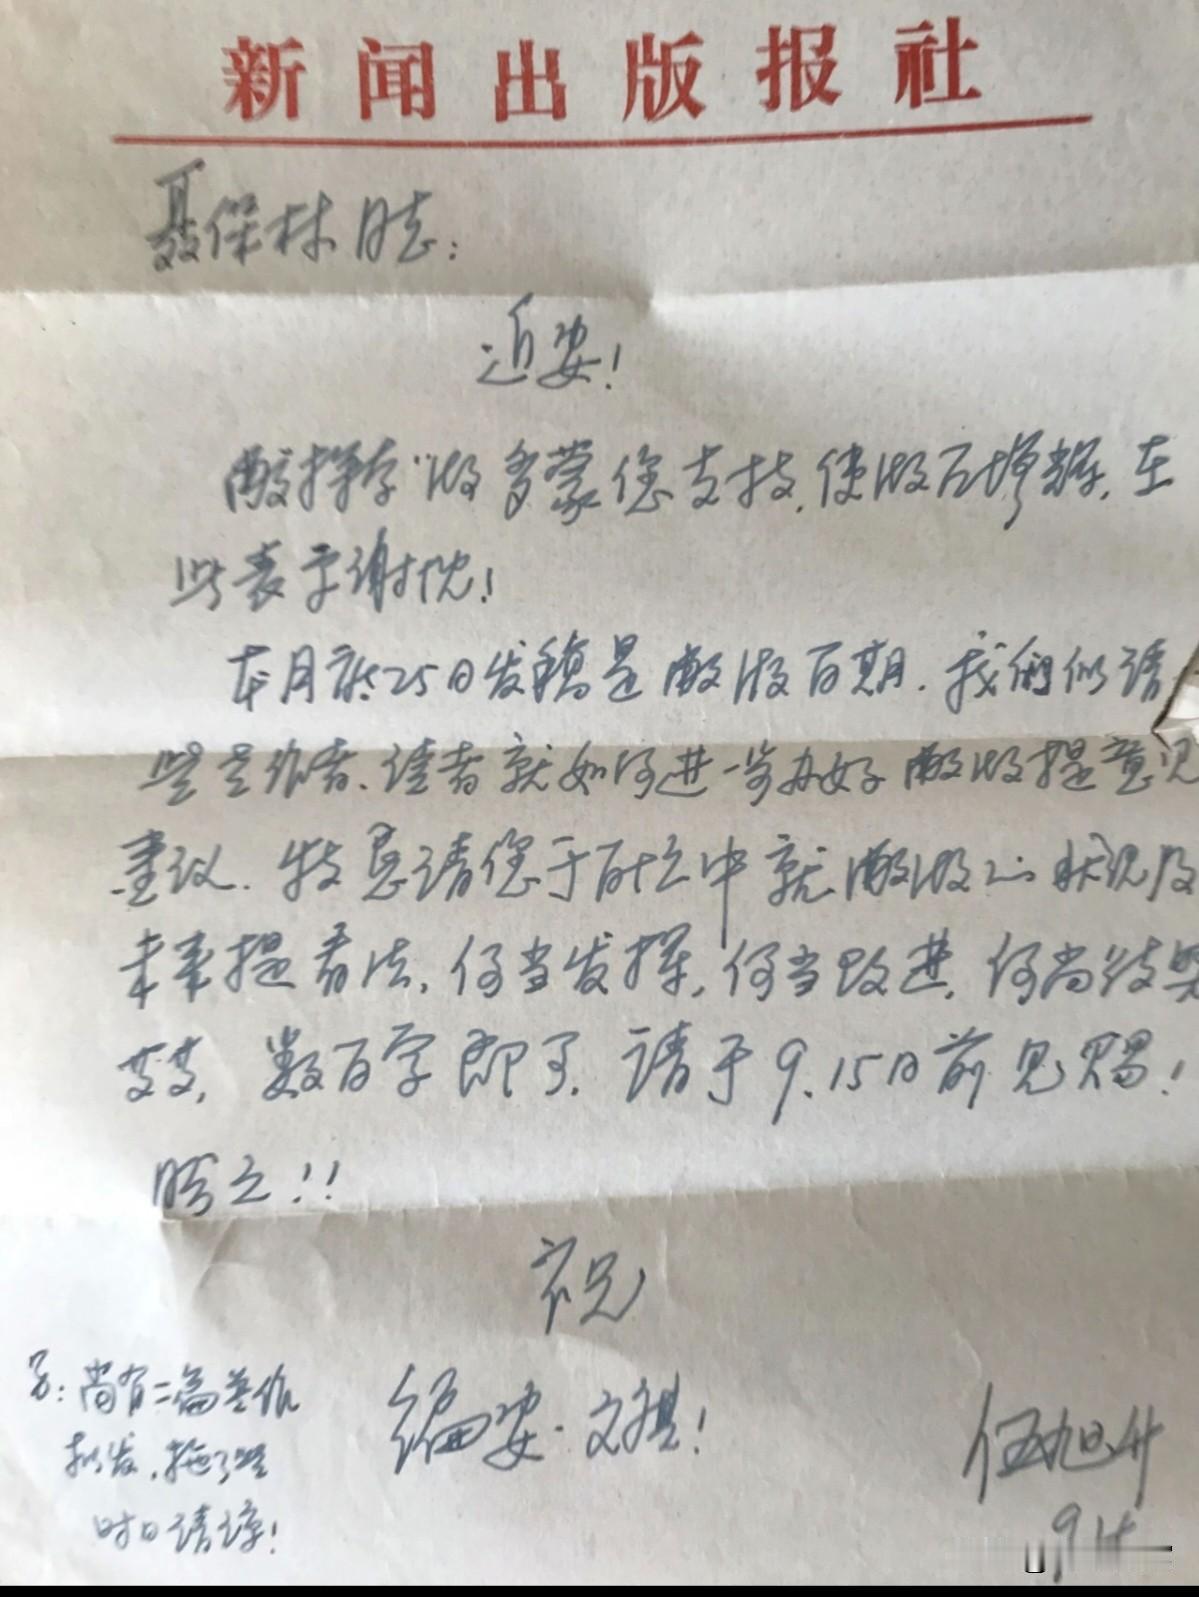 新闻出版报社
聂保林同志：
近安！
敝版多蒙您支持，使版面增辉，在
此表示谢忱！
本月底25日发稿是敝版百期，我们拟请
些老作者、读者就如何进一步办好敝版提意见
建议。特恳请您于百忙中就敝版的状况及
未来提看法，何当发挥，何当改进，何尚
数百字即可。请于9.15日前见赐！
盼之！！
祝
编安·文祺！
另：尚有二篇大作
拟发，拖了些
时日请谅！
伍旭升
9